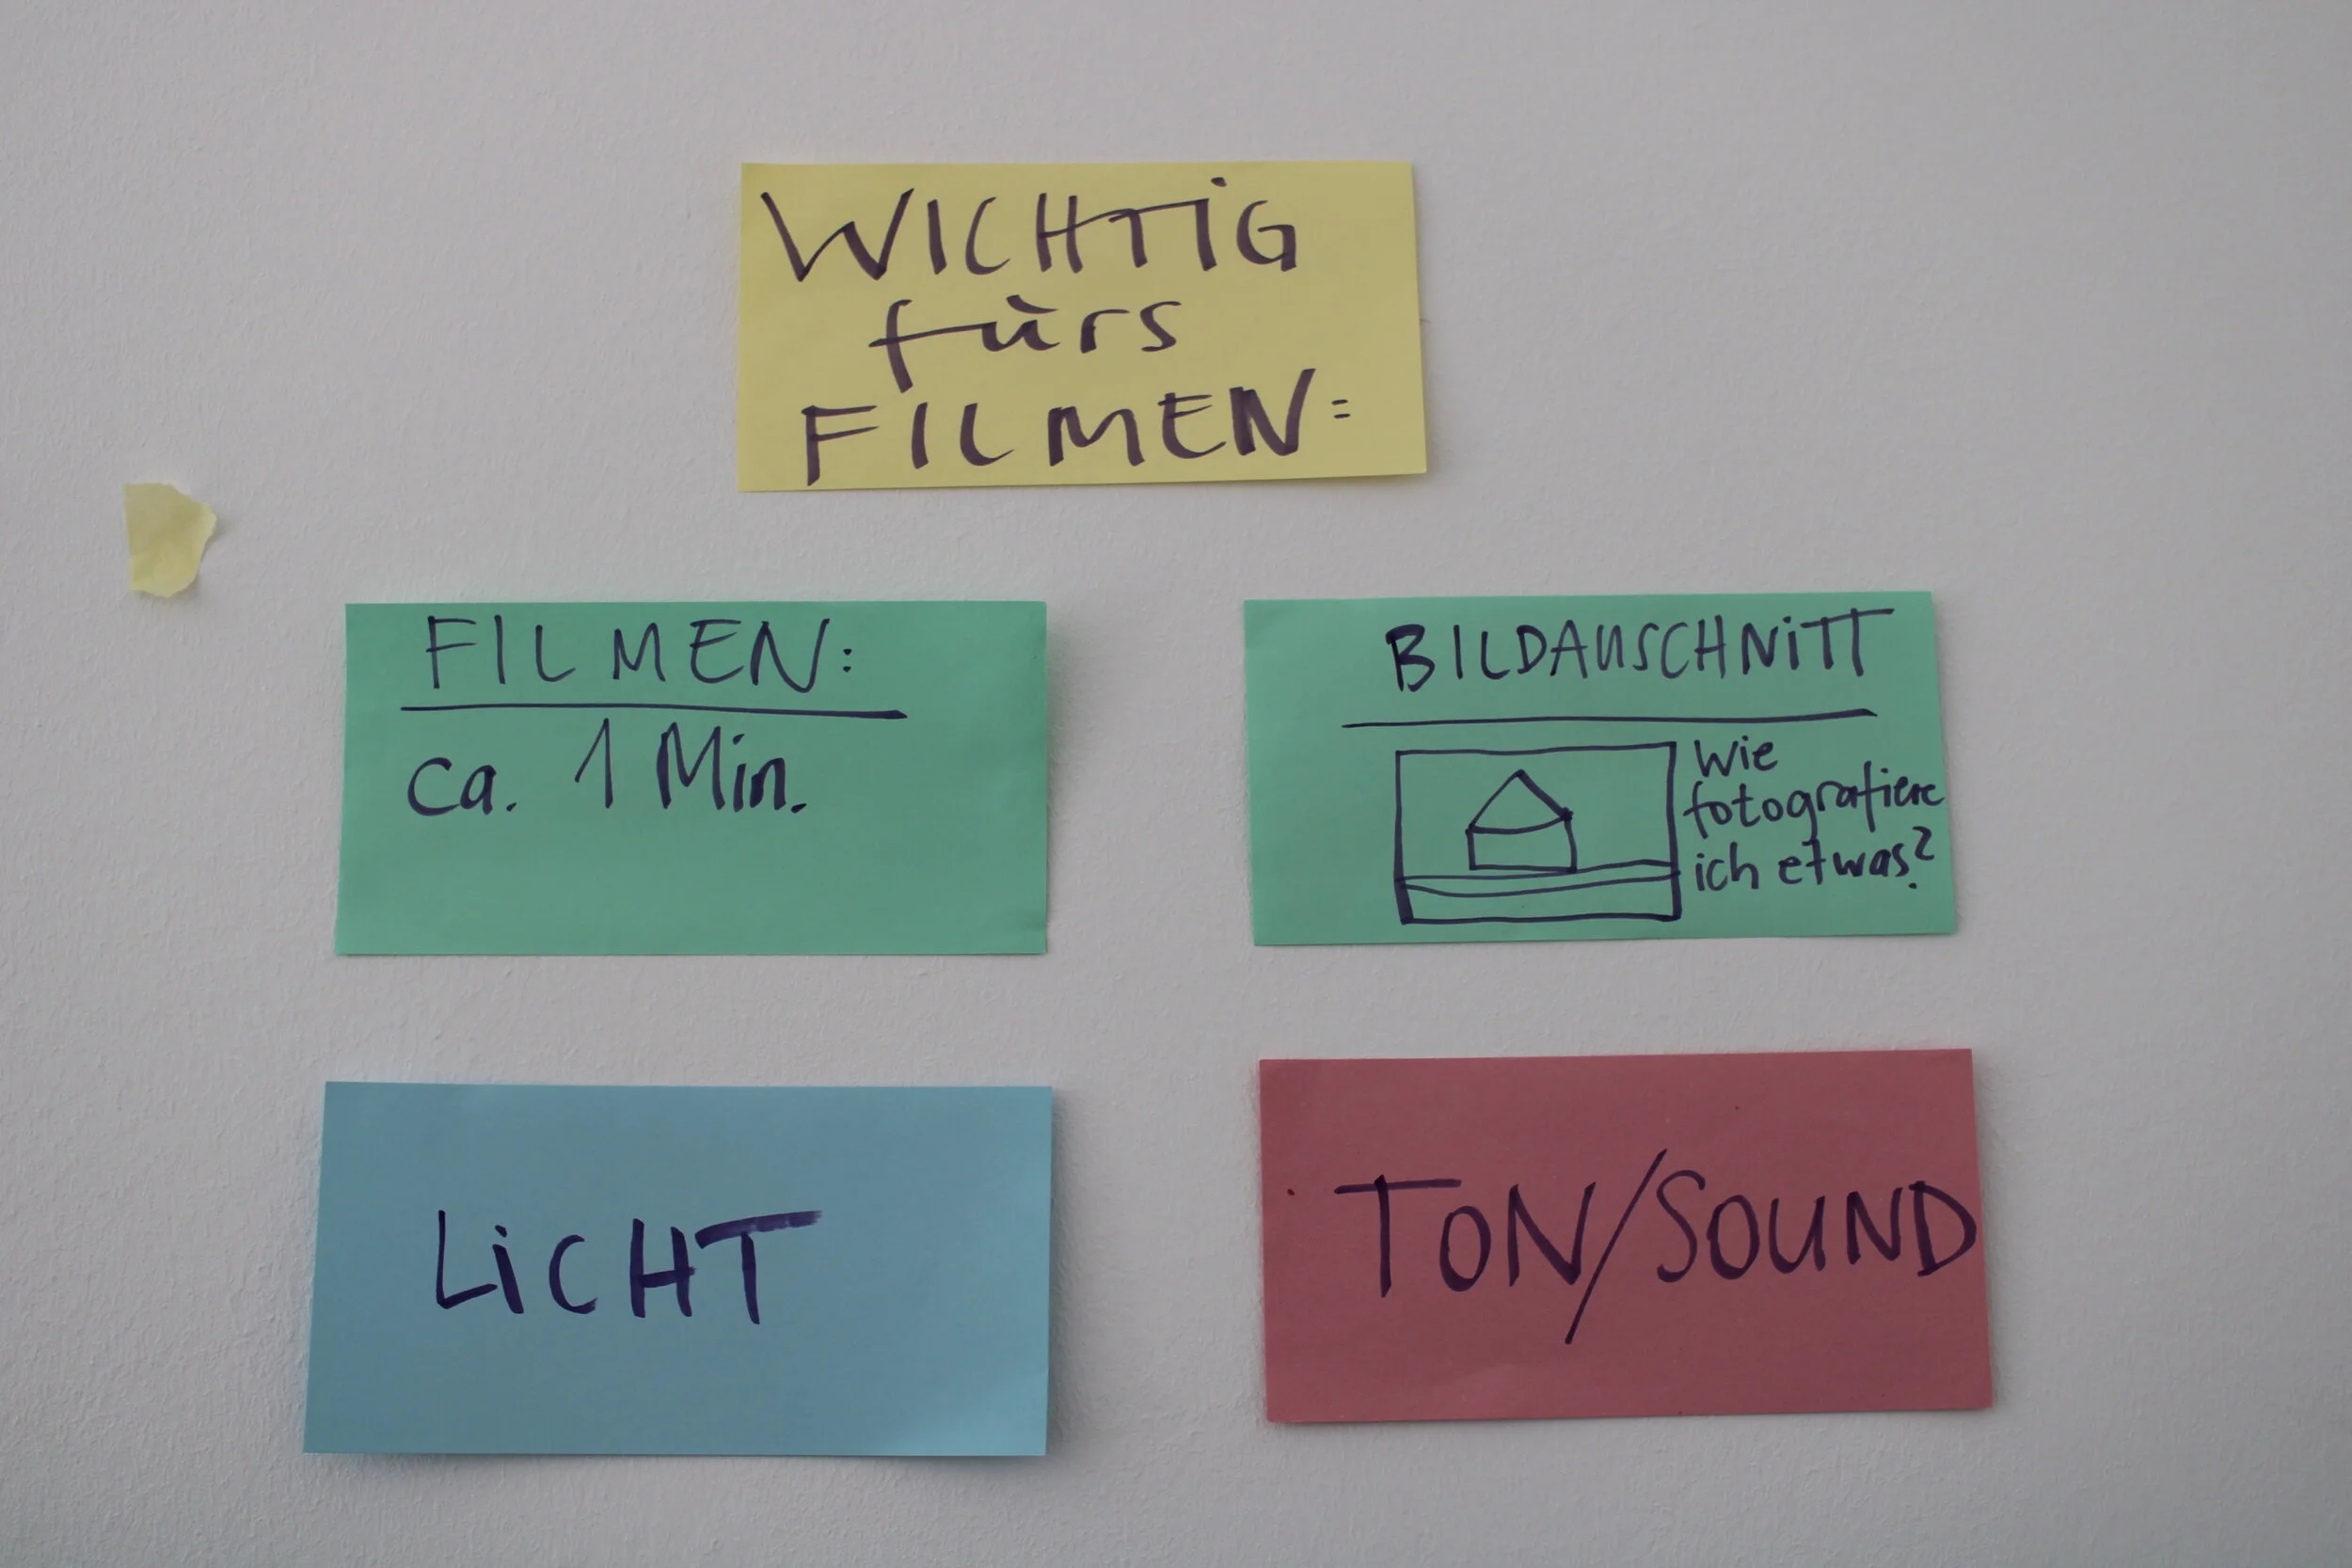 WICHTIG
fürs
FILMEN:
FILMEN:
ca. 1 Min.
BILDAUSCHNITT
Wie
fotografiere
ich etwas?
LICHT
TON/SOUND